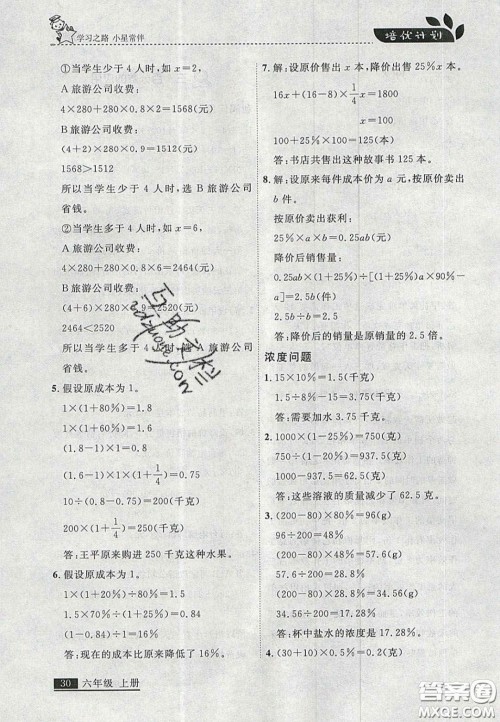 学习之路 小星常伴
培优计划
①当学生少于 4 人时,如 x=2,
A 旅游公司收费:
4×280+280×0.8×2=1568(元)
B 旅游公司收费:
(4+2)×280×0.9=1512(元)
1568>1512
所以当学生少于 4 人时,选 B 旅游公司
省钱。
②当学生多于 4 人时,如 x=6,
A 旅游公司收费:
4×280+280×0.8×6=2464(元)
B 旅游公司收费:
(4+6)×280×0.9=2520(元)
2464<2520
所以当学生多于 4 人时,选 A 旅游公司
省钱。
5. 假设原成本为1。
1×(1+80%)=1.8
1×(1+60%)=1.6
(1.6-1)×(1+1/4)=0.75
10÷(0.8-0.75)=200(千克)
200×(1+1/4)=250(千克)
答:王平原来购进 250 千克这种水果。
6. 假设原成本为 1。
1×(1+20%)=1.2
1.5×70%÷(1+25%)=0.84
(1-0.84)÷1=16%
答:现在的成本比原来降低了 16%。
7. 解:设原价售出 x 本,降价出售 25%x 本。
16x+(16-8)×1/4x=1800
x=100
100+25%×100=125(本)
答:书店共售出这种故事书 125 本。
8. 解:设原来每件成本价为 a 元,按原价卖出
b 件。
按原价卖出获利:
25%×a×b=0.25ab(元)
降价后销售量:
0.25ab×(1+25%)÷[(1+25%)a×90%-
a]=2.5b(件)
2.5b÷b=2.5
答:降价后的销量是原销量的 2.5 倍。
浓度问题
1. 15×10%=1.5(千克)
1.5÷8%-15=3.75(千克)
答:需要加水 3.75 千克。
2. 1000×(1-25%)=750(克)
750÷(1-20%)=937.5(克)
1000-937.5=62.5(克)
答:这些溶液的质量减少了 62.5 克。
3. (200-80)×80%=96(g)
96÷200=48%
(200-80)×48%=57.6(g)
57.6÷200=28.8%
(200-80)×28.8%=34.56(g)
34.56÷200=17.28%
答:杯中盐水的浓度是 17.28%。
4. (30+10)×0.4%
30 六年级 上册
答案圈
MXQE.COM